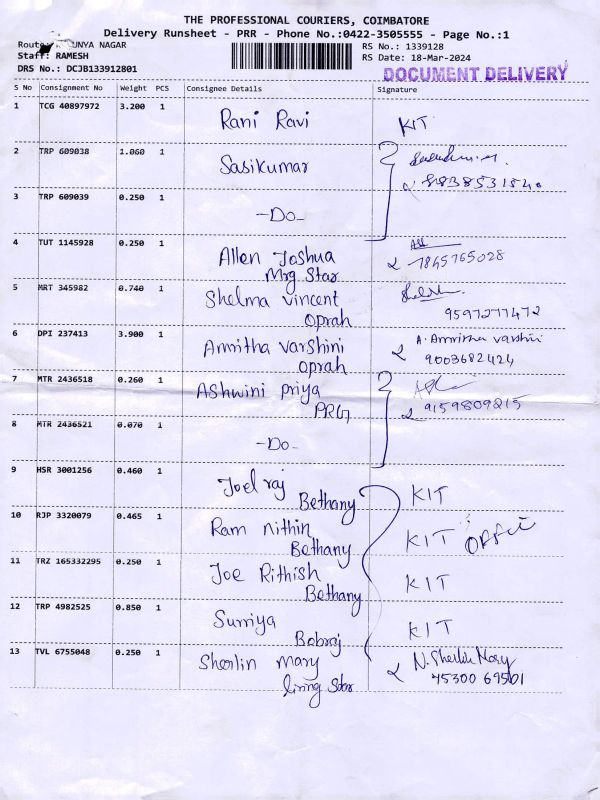 THE PROFESSIONAL COURIERS, COIMBATORE
Delivery Runsheet - PRR - Phone No.:0422-3505555 - Page No.:1
Route: UNYA NAGAR
RS No.: 1339128
Staff: RAMESH
RS Date: 18-Mar-2024
DRS No.: DCJB133912801
DOCUMENT DELIVERY
S No Consignment No Weight PCS Consignee Details Signature
1 TCG 40897972 3.200 1 Rani Ravi KIT
2 TRP 609038 1.060 1 Sasikumar
3 TRP 609039 0.250 1 -Do-
4 TUT 1145928 0.250 1 Allen Joshua 7845765028
Mrg Star
5 MRT 345982 0.740 1 Shelma vincent
Oprah 9597277472
6 DPI 237413 3.900 1 Amritha varshini A. Amritha varshini
Oprah 9003682424
7 MTR 2436518 0.260 1 Ashwini priya
PRG 9159809215
8 MTR 2436521 0.070 1 -Do-
9 HSR 3001256 0.460 1 Joel raj KIT
Bethany
10 RJP 3320079 0.465 1 Ram nithin KIT Office
Bethany
11 TRZ 165332295 0.250 1 Joe Rithish KIT
Bethany
12 TRP 4982525 0.850 1 Surriya KIT
Bobraj
13 TVL 6755048 0.250 1 Sharlin mary
living Star